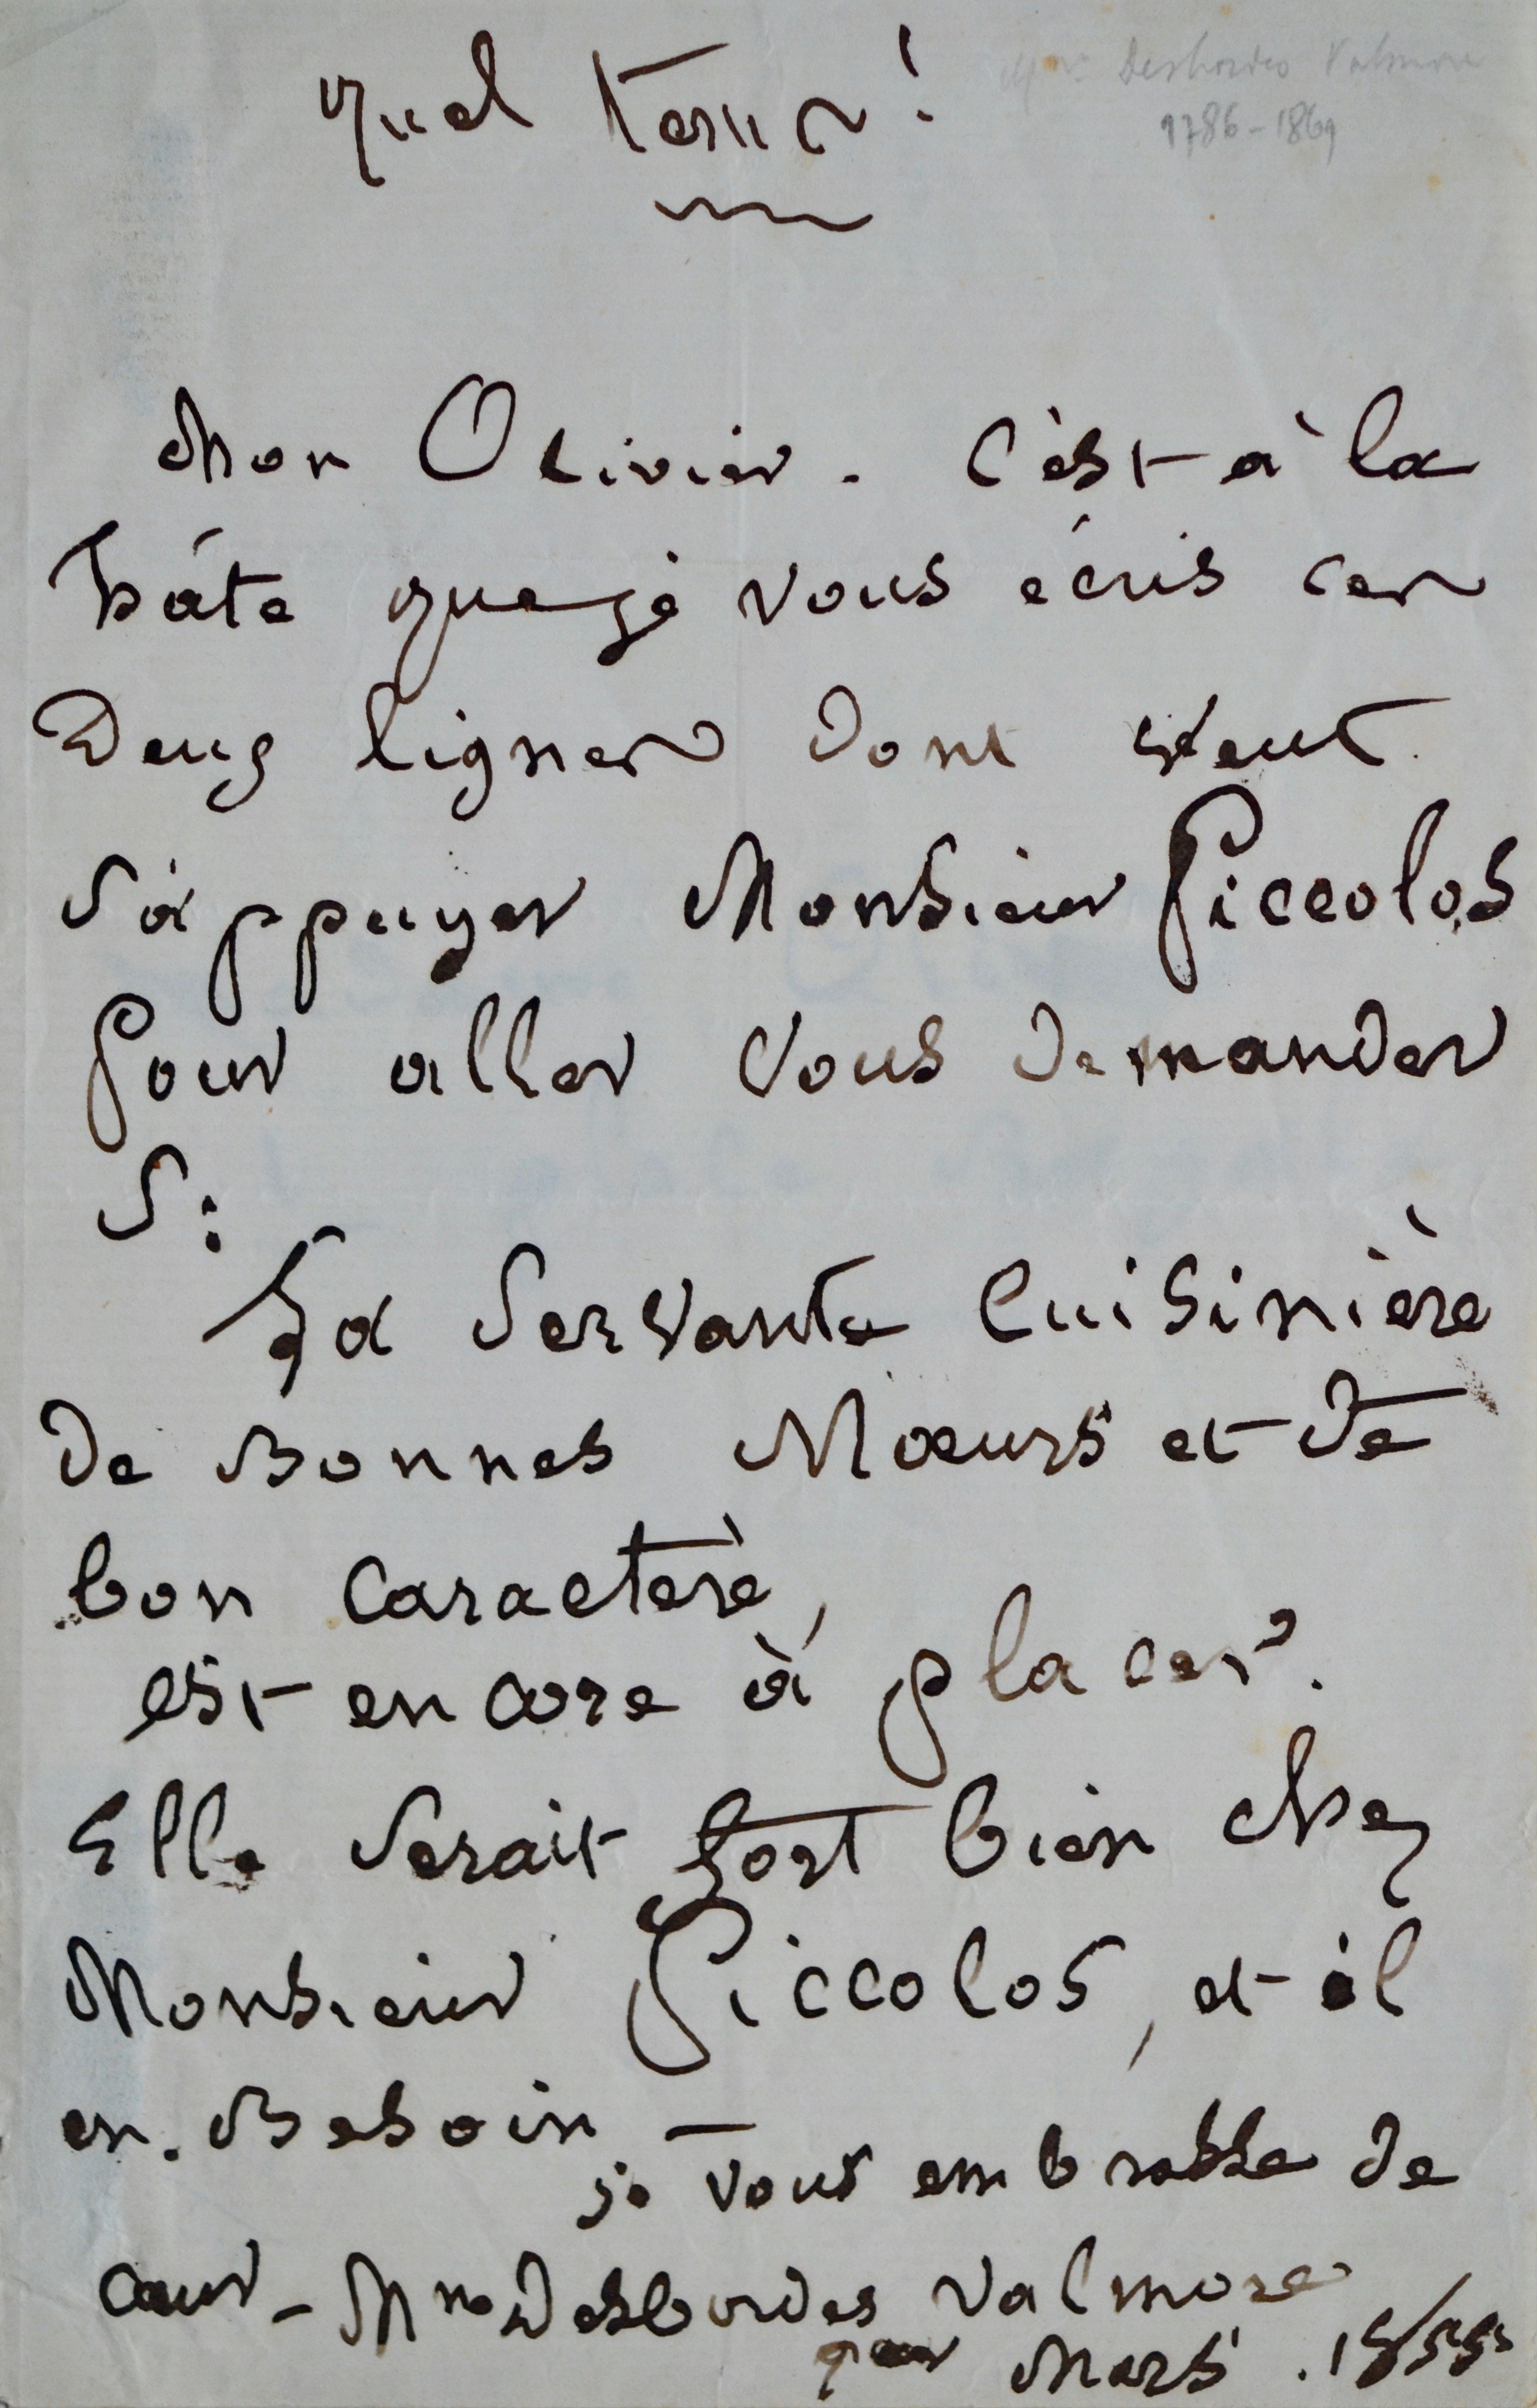 quel tems!
Desbordes Valmore
1786-1869
Mon Olivier. C'est à la
hâte que je vous écris ces
Deux lignes dont veut
S'appuyer Monsieur Piccolos
Pour aller vous demander
Si
La Servante Cuisinière
De Bonnes Mœurs et de
bon caractère,
est encore à placer?
Elle serait fort bien chez
Monsieur Piccolos, et il
en. Besoin —
je vous embrasse de
cœur - Mme Desbordes Valmore
Mars. 1855